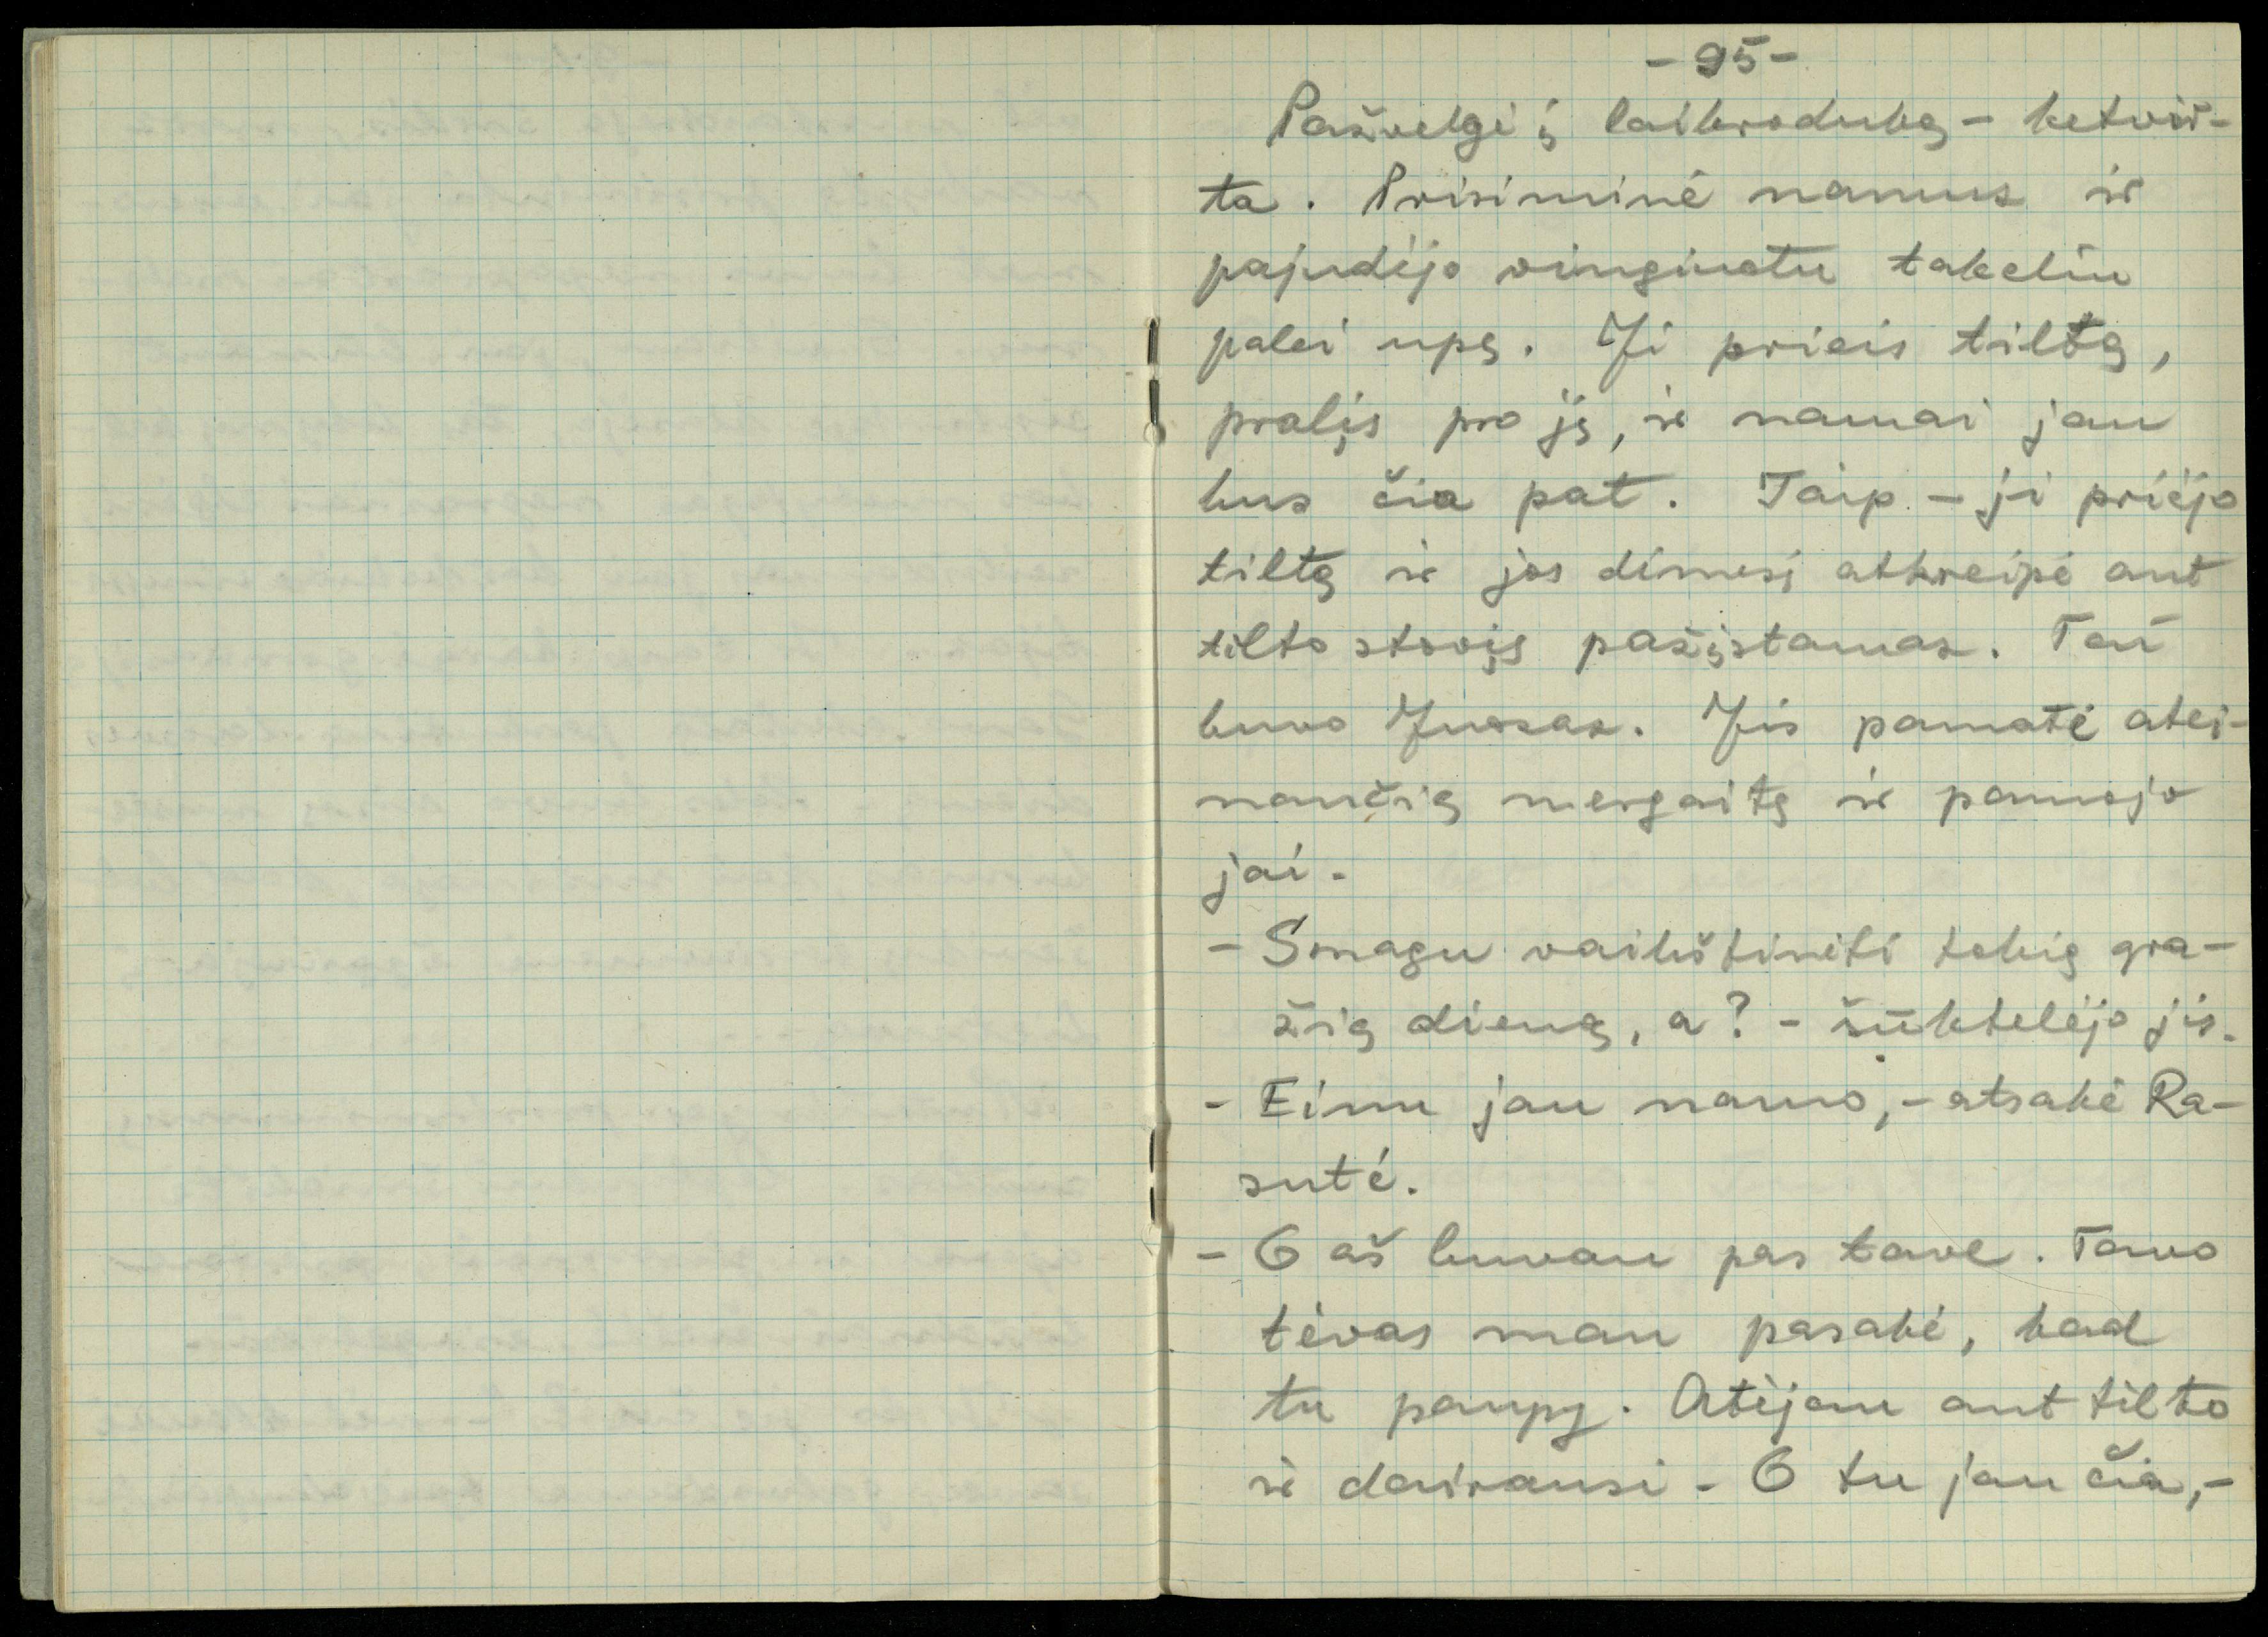 - 95 -
Pažvelgė į laikroduką - ketvir-
ta. Prisiminė namus ir
pajudėjo vingiuotu takeliu
palei upę. Ji prieis tiltą,
pralįs pro jį, ir namai jau
bus čia pat. Taip - ji priėjo
tiltą ir jos dėmesį atkreipė ant
tilto stovįs pažįstamas. Tai
buvo Juozas. Jis pamatė atei-
nančią mergaitę ir pamojo
jai.
- Smagu vaikštinėti tokią gra-
žią dieną, a? - šūktelėjo jis.
- Einu jau namo, - atsakė Ra-
sutė.
- O aš buvau pas tave. Tavo
tėvas man pasakė, kad
tu paupy. Atėjau ant tilto
ir dairausi - O tu jau čia, -